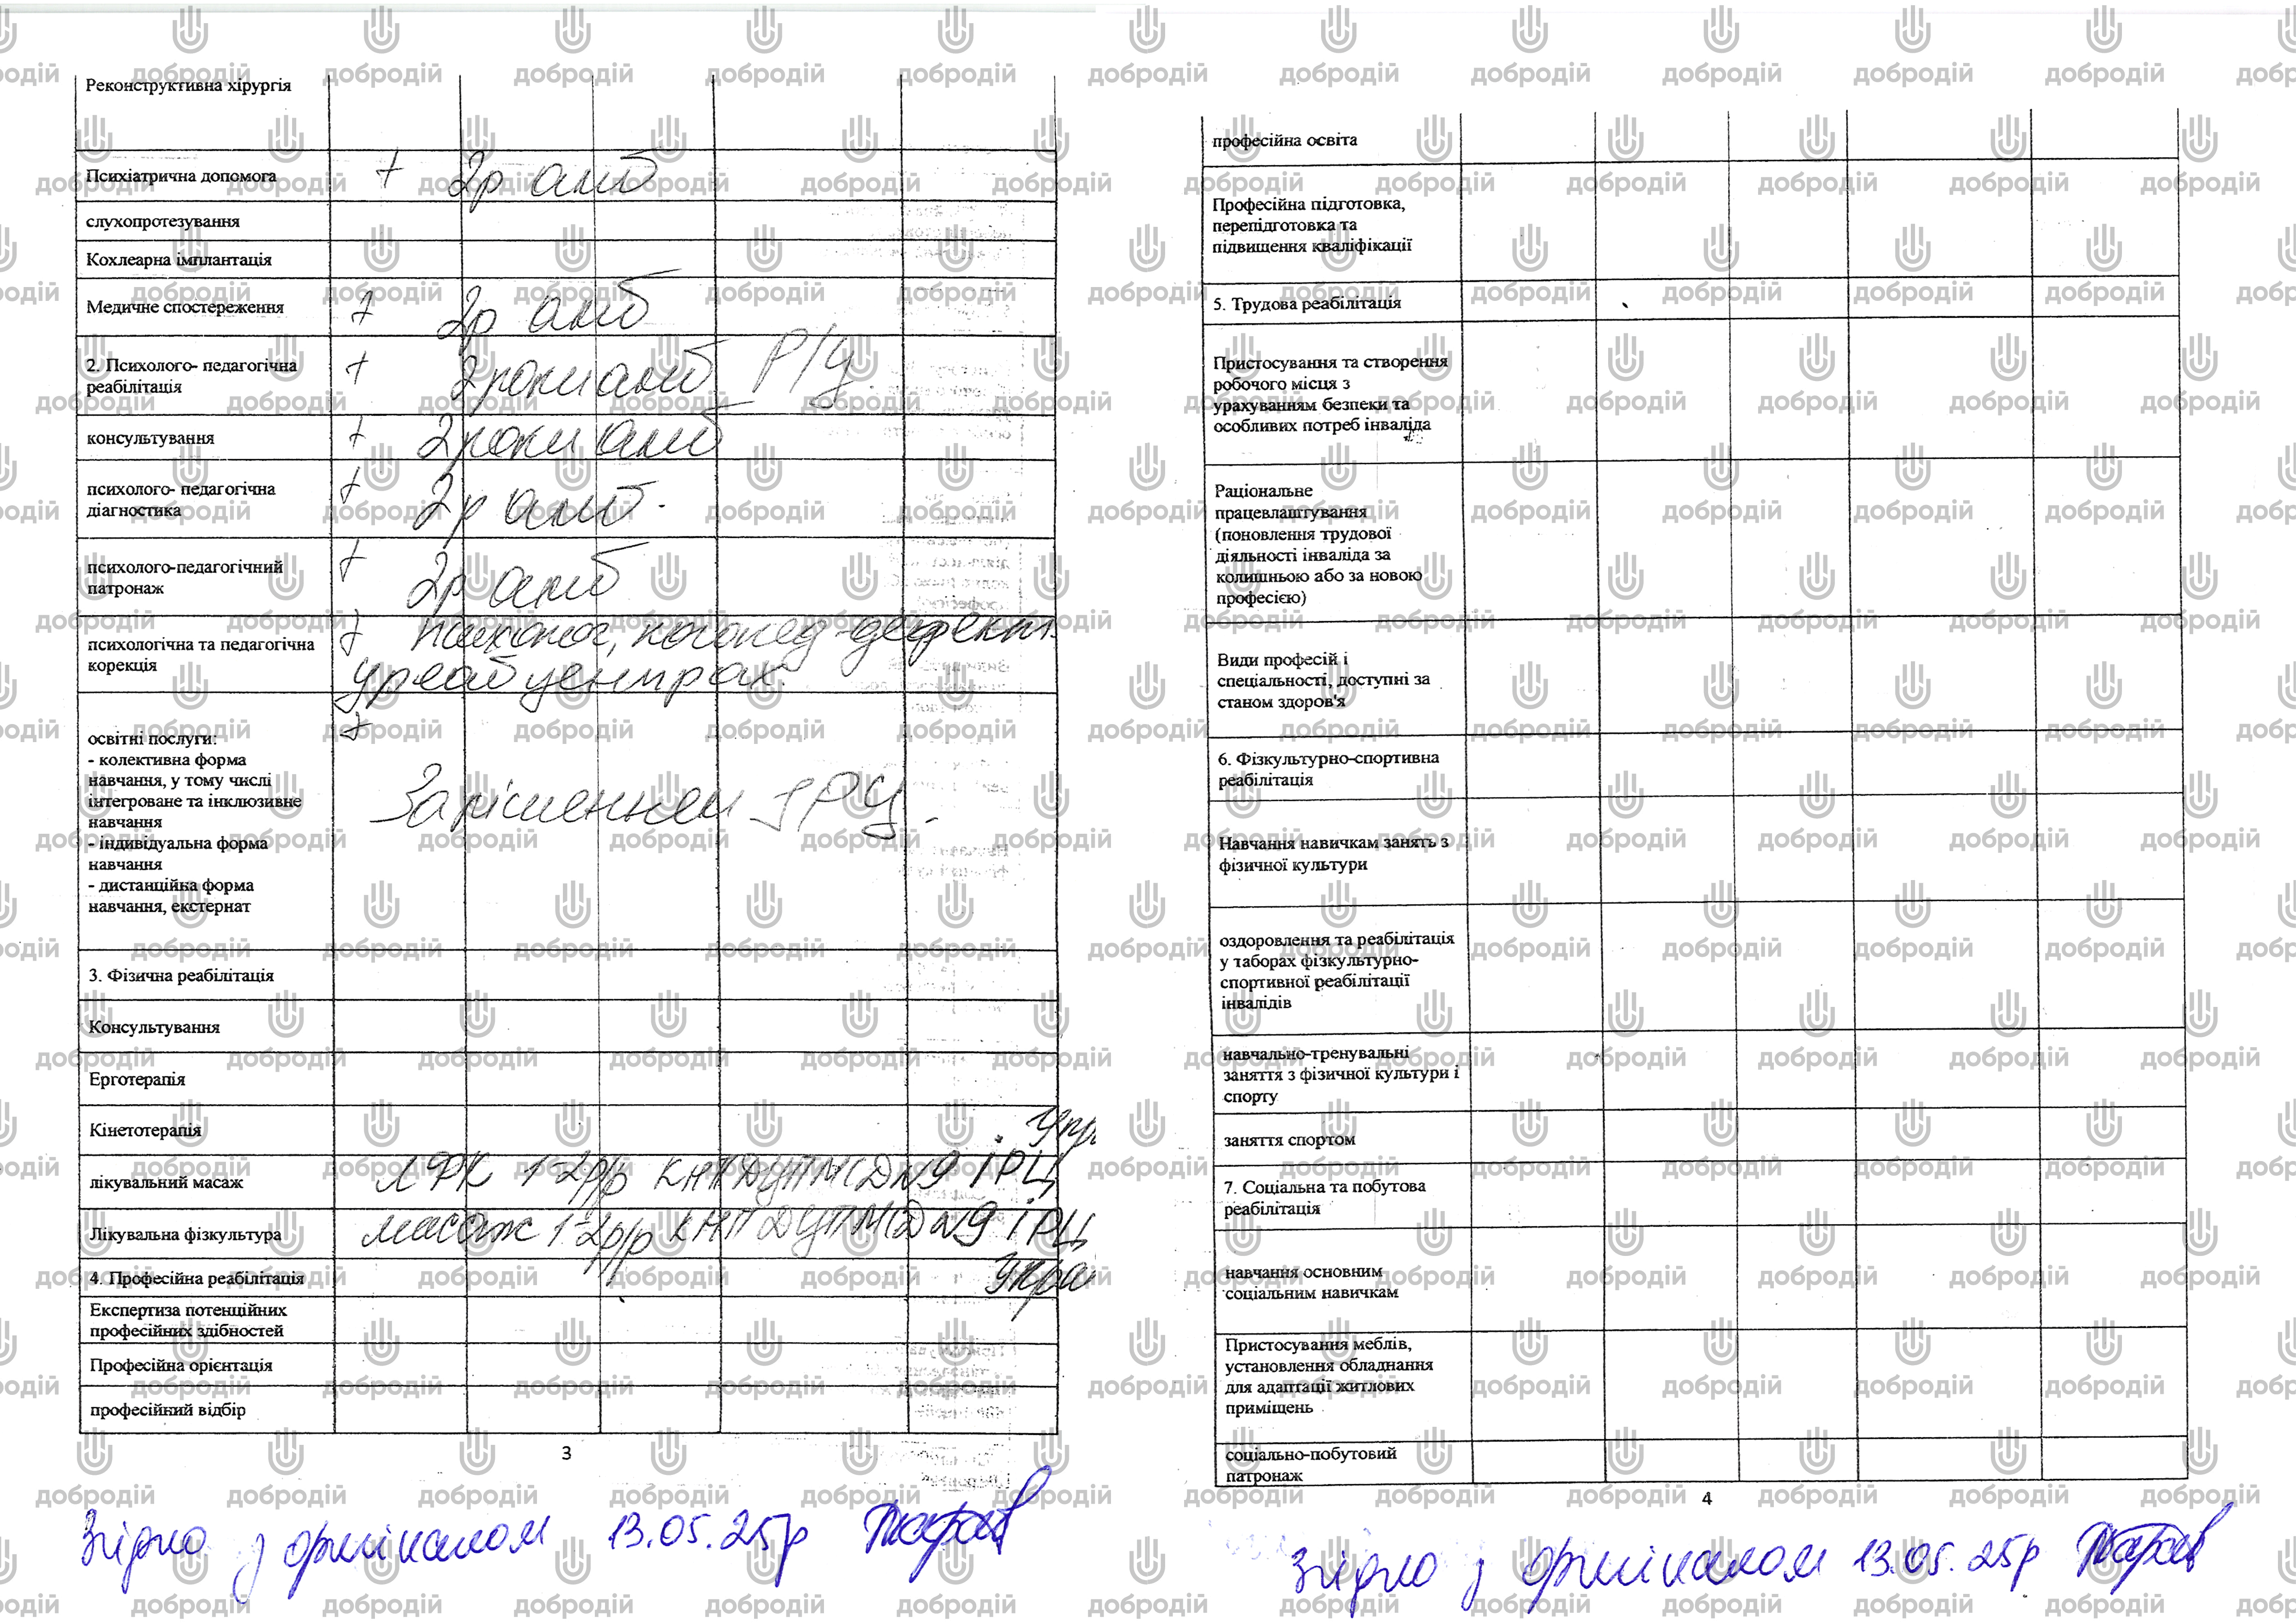 Реконструктивна хірургія
Психіатрична допомога + 2р амб
слухопротезування
Кохлеарна імплантація
Медичне спостереження + 2р амб
2. Психолого- педагогічна
реабілітація + 2роки амб Р/Ц.
консультування + 2роки амб
психолого- педагогічна
діагностика + 2р амб.
психолого-педагогічний
патронаж + 2р амб
психологічна та педагогічна + психолог, логопед-дефект.
корекція у реабцентрах.
+
освітні послуги:
- колективна форма
навчання, у тому числі
інтегроване та інклюзивне
навчання
За рішенням ІРЦ.
- індивідуальна форма
навчання
- дистанційна форма
навчання, екстернат
3. Фізична реабілітація
Консультування
Ерготерапія
Кінетотерапія
лікувальний масаж ЛФК 1-2р/р КНП ДЦПМСД №9 ІРЦ
Лікувальна фізкультура масаж 1-2р/р КНП ДЦПМСД №9 ІРЦ
4. Професійна реабілітація
Експертиза потенційних
професійних здібностей
Професійна орієнтація
професійний відбір
3
Згідно з оригіналом 13.05.25р
професійна освіта
Професійна підготовка,
перепідготовка та
підвищення кваліфікації
5. Трудова реабілітація
Пристосування та створення
робочого місця з
урахуванням безпеки та
особливих потреб інваліда
Раціональне
працевлаштування
(поновлення трудової
діяльності інваліда за
колишньою або за новою
професією)
Види професій і
спеціальності, доступні за
станом здоров'я
6. Фізкультурно-спортивна
реабілітація
Навчання навичкам занять з
фізичної культури
оздоровлення та реабілітація
у таборах фізкультурно-
спортивної реабілітації
інвалідів
навчально-тренувальні
заняття з фізичної культури і
спорту
заняття спортом
7. Соціальна та побутова
реабілітація
навчання основним
соціальним навичкам
Пристосування меблів,
установлення обладнання
для адаптації житлових
приміщень
соціально-побутовий
патронаж
4
Згідно з оригіналом 13.05.25р
добродій